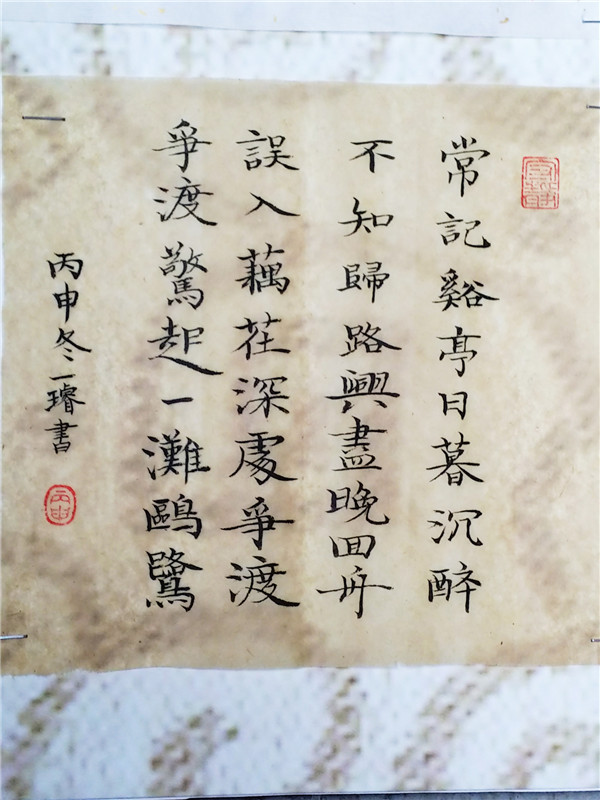 常記谿亭日暮沉醉
不知歸路興盡晚回舟
誤入藕花深處爭渡
爭渡驚起一灘鷗鷺
丙申冬一璿書
丙申